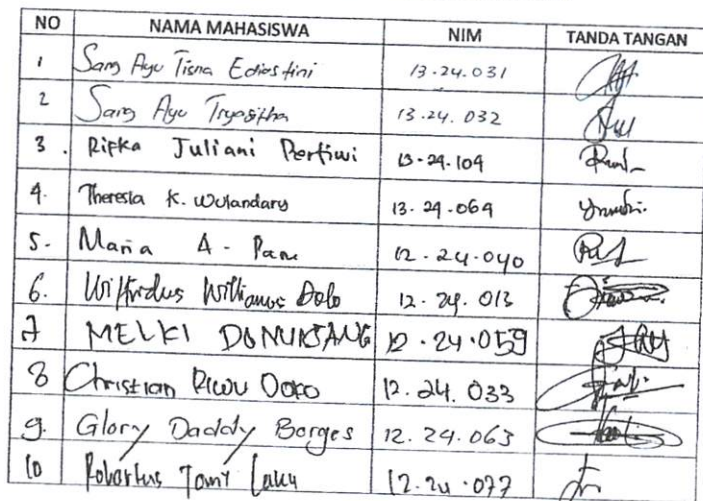 NO NAMA MAHASISWA NIM TANDA TANGAN
1 Sang Ayu Tisna Ediastini 13.24.031
2 Sang Ayu 13.24.032
3. Ripka Juliani Pertiwi 13.24.104
4. Theresia K. Wulandary 13.24.064
5. Maria A. 12.24.040
6. Wilfridus Willianus Dolo 12.24.013
7 MELKI 12.24.059
8 Christian Riwu Doko 12.24.033
9. Glory Daddy Borges 12.24.063
10 Robertus Tomy Laku 12.24.077